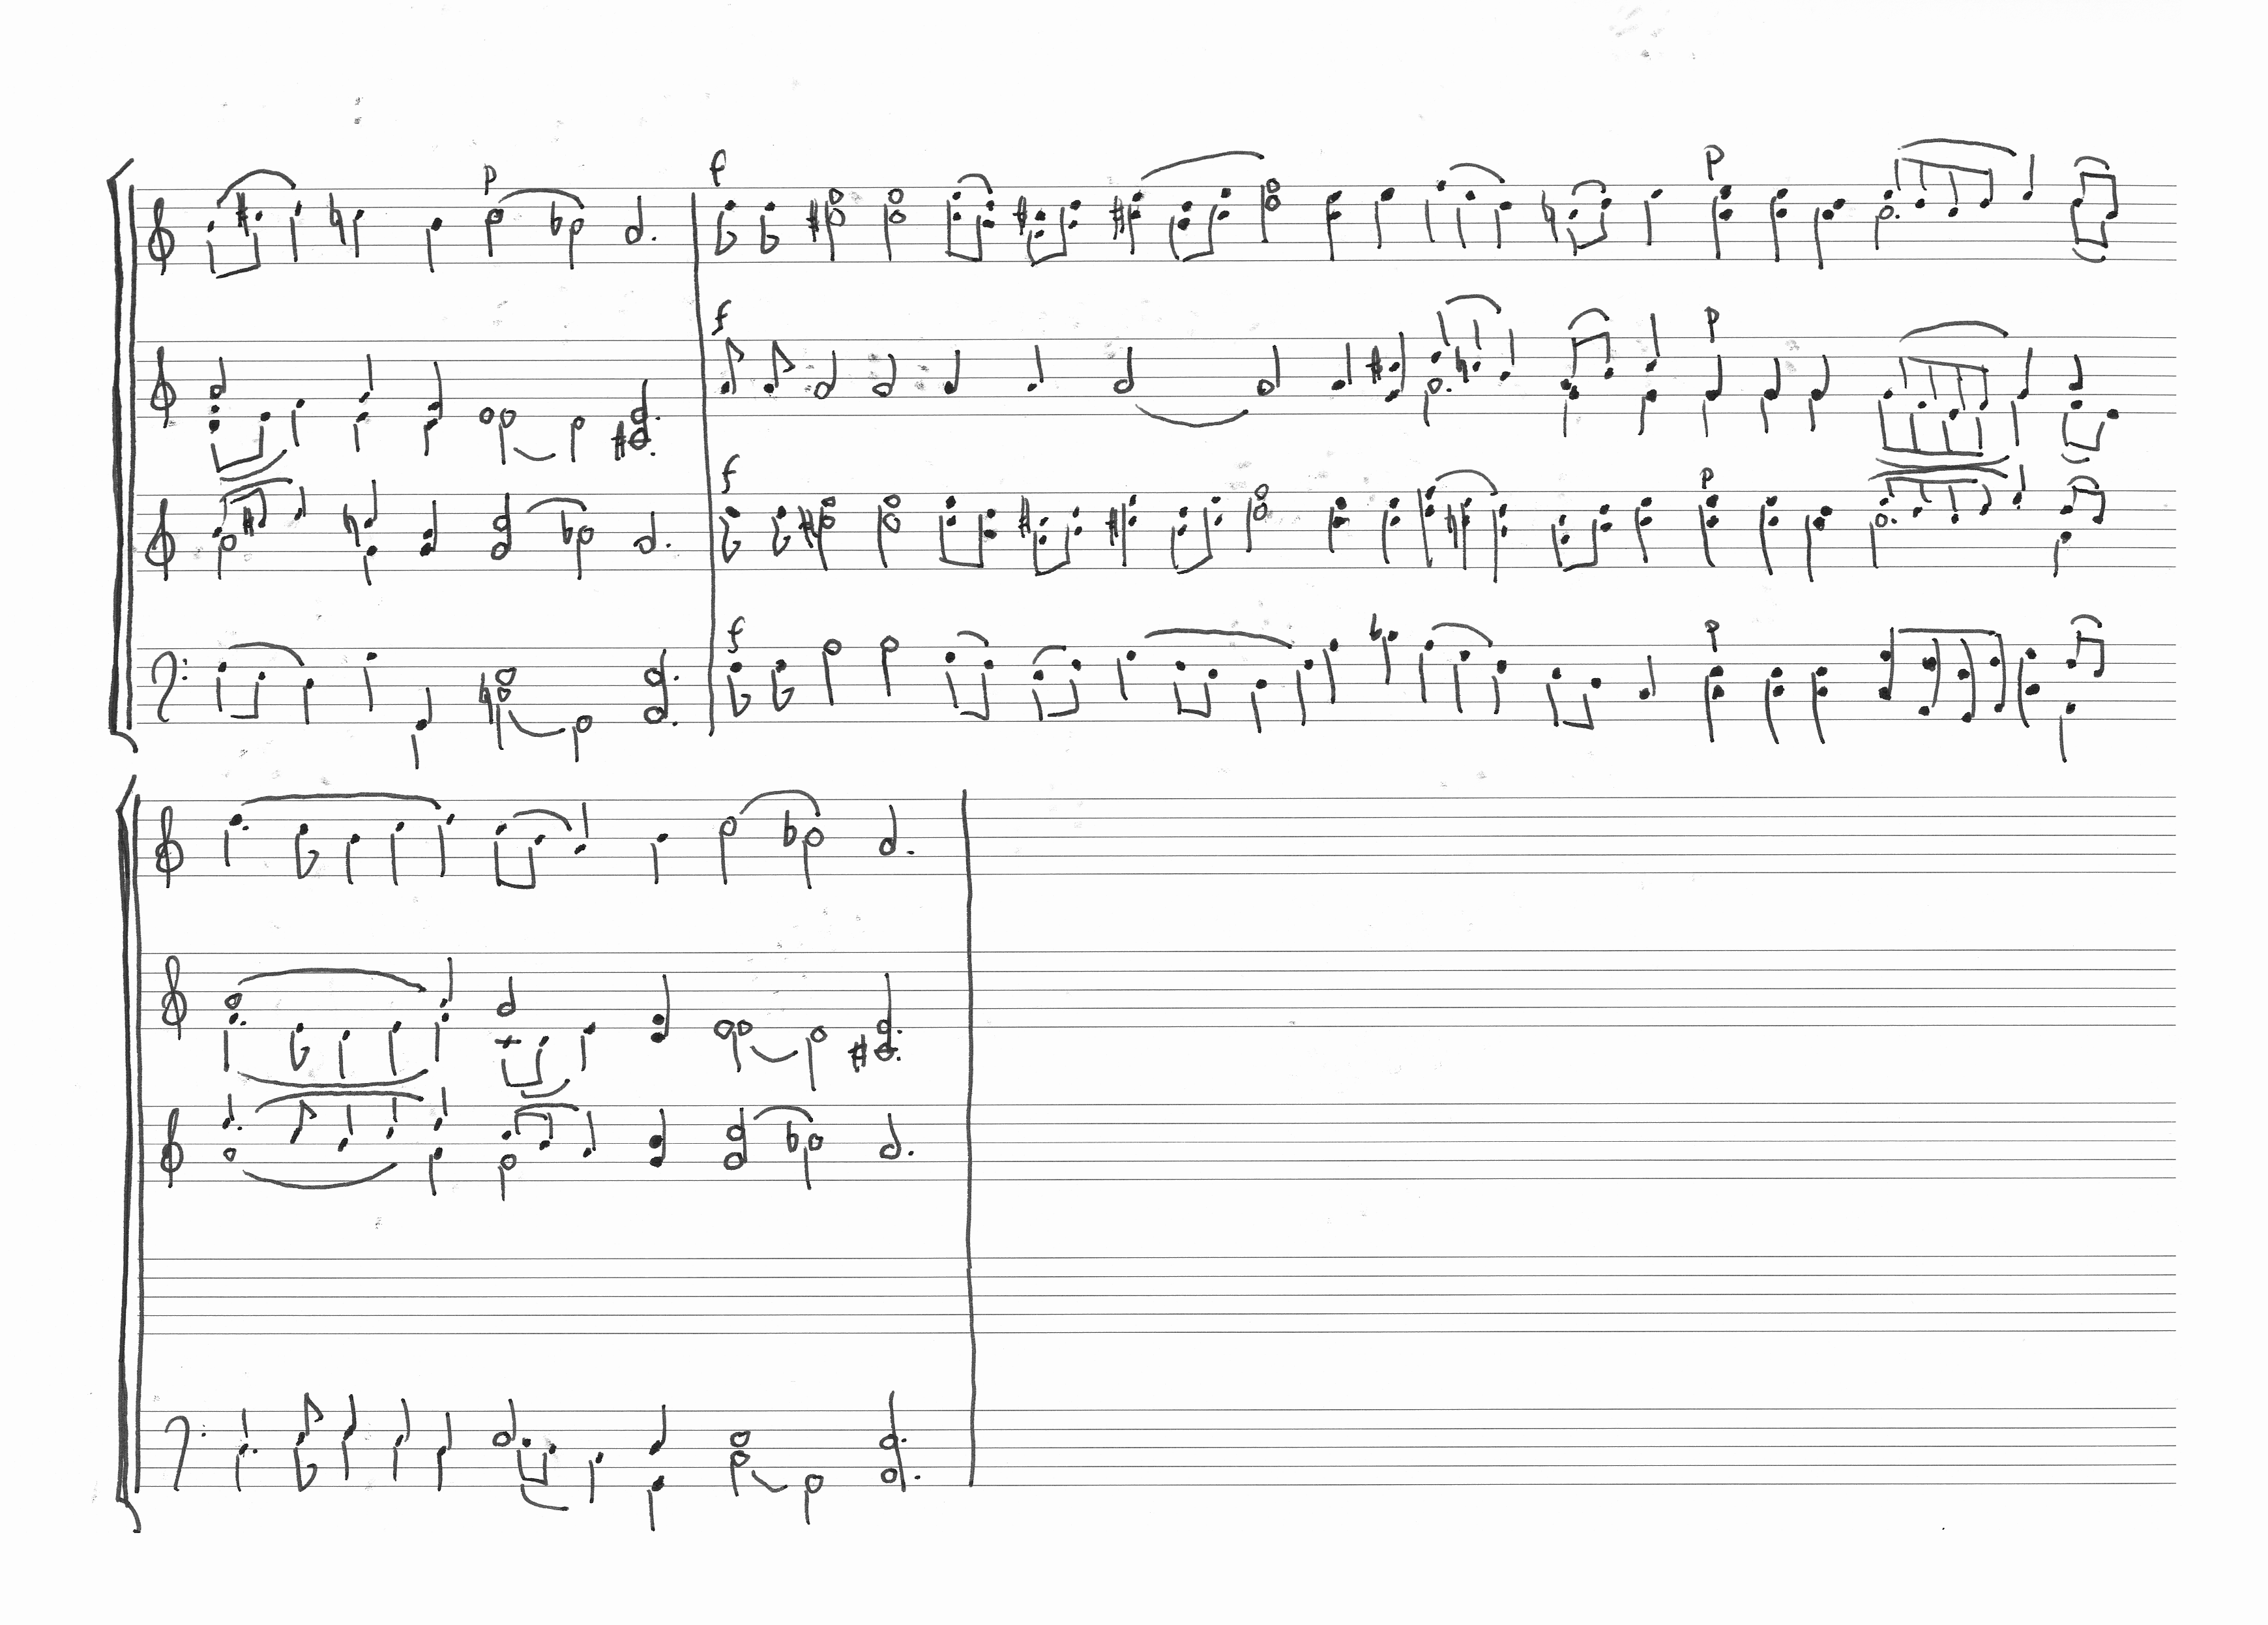 p
f
p
f
p
f
p
f
p